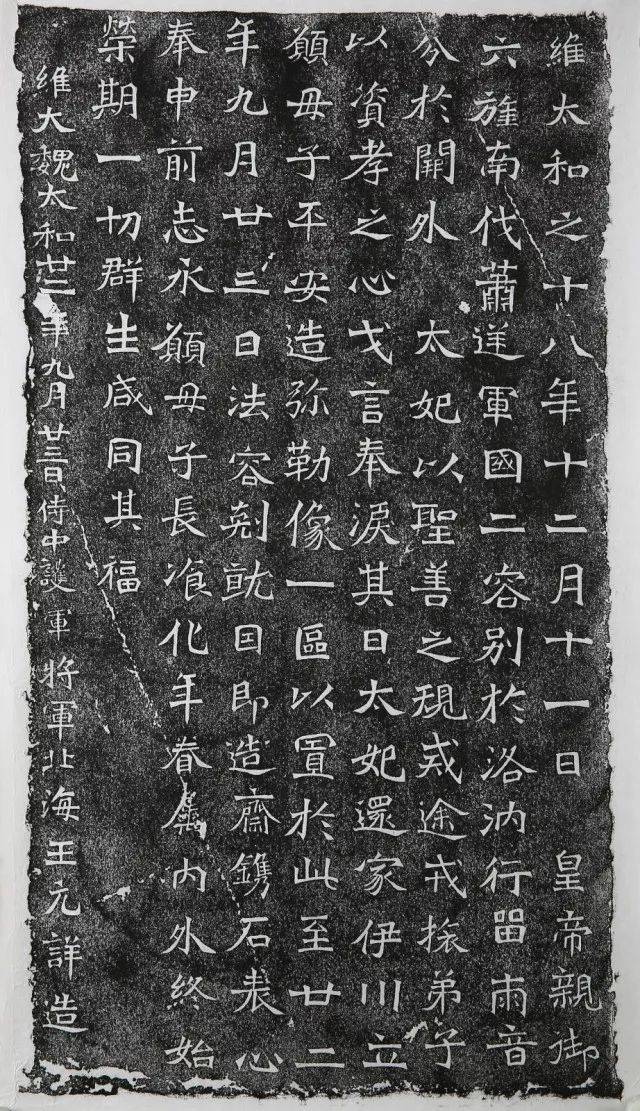 維太和之十八年十二月十一日 皇帝親御
六旌南伐蕭逆軍國二容別於洛汭行留兩音
分於闕外 太妃以聖善之規戒途戎旅弟子
以資孝之心戈言奉淚其日太妃還家伊川立
願母子平安造弥勒像一區以置於此至廿二
年九月廿三日法容剋就因即造齋鐫石表心
奉申前志永願母子長飡化年眷屬內外終始
榮期一切群生咸同其福
維大魏太和廿二年九月廿三日侍中護軍將軍北海王元詳造